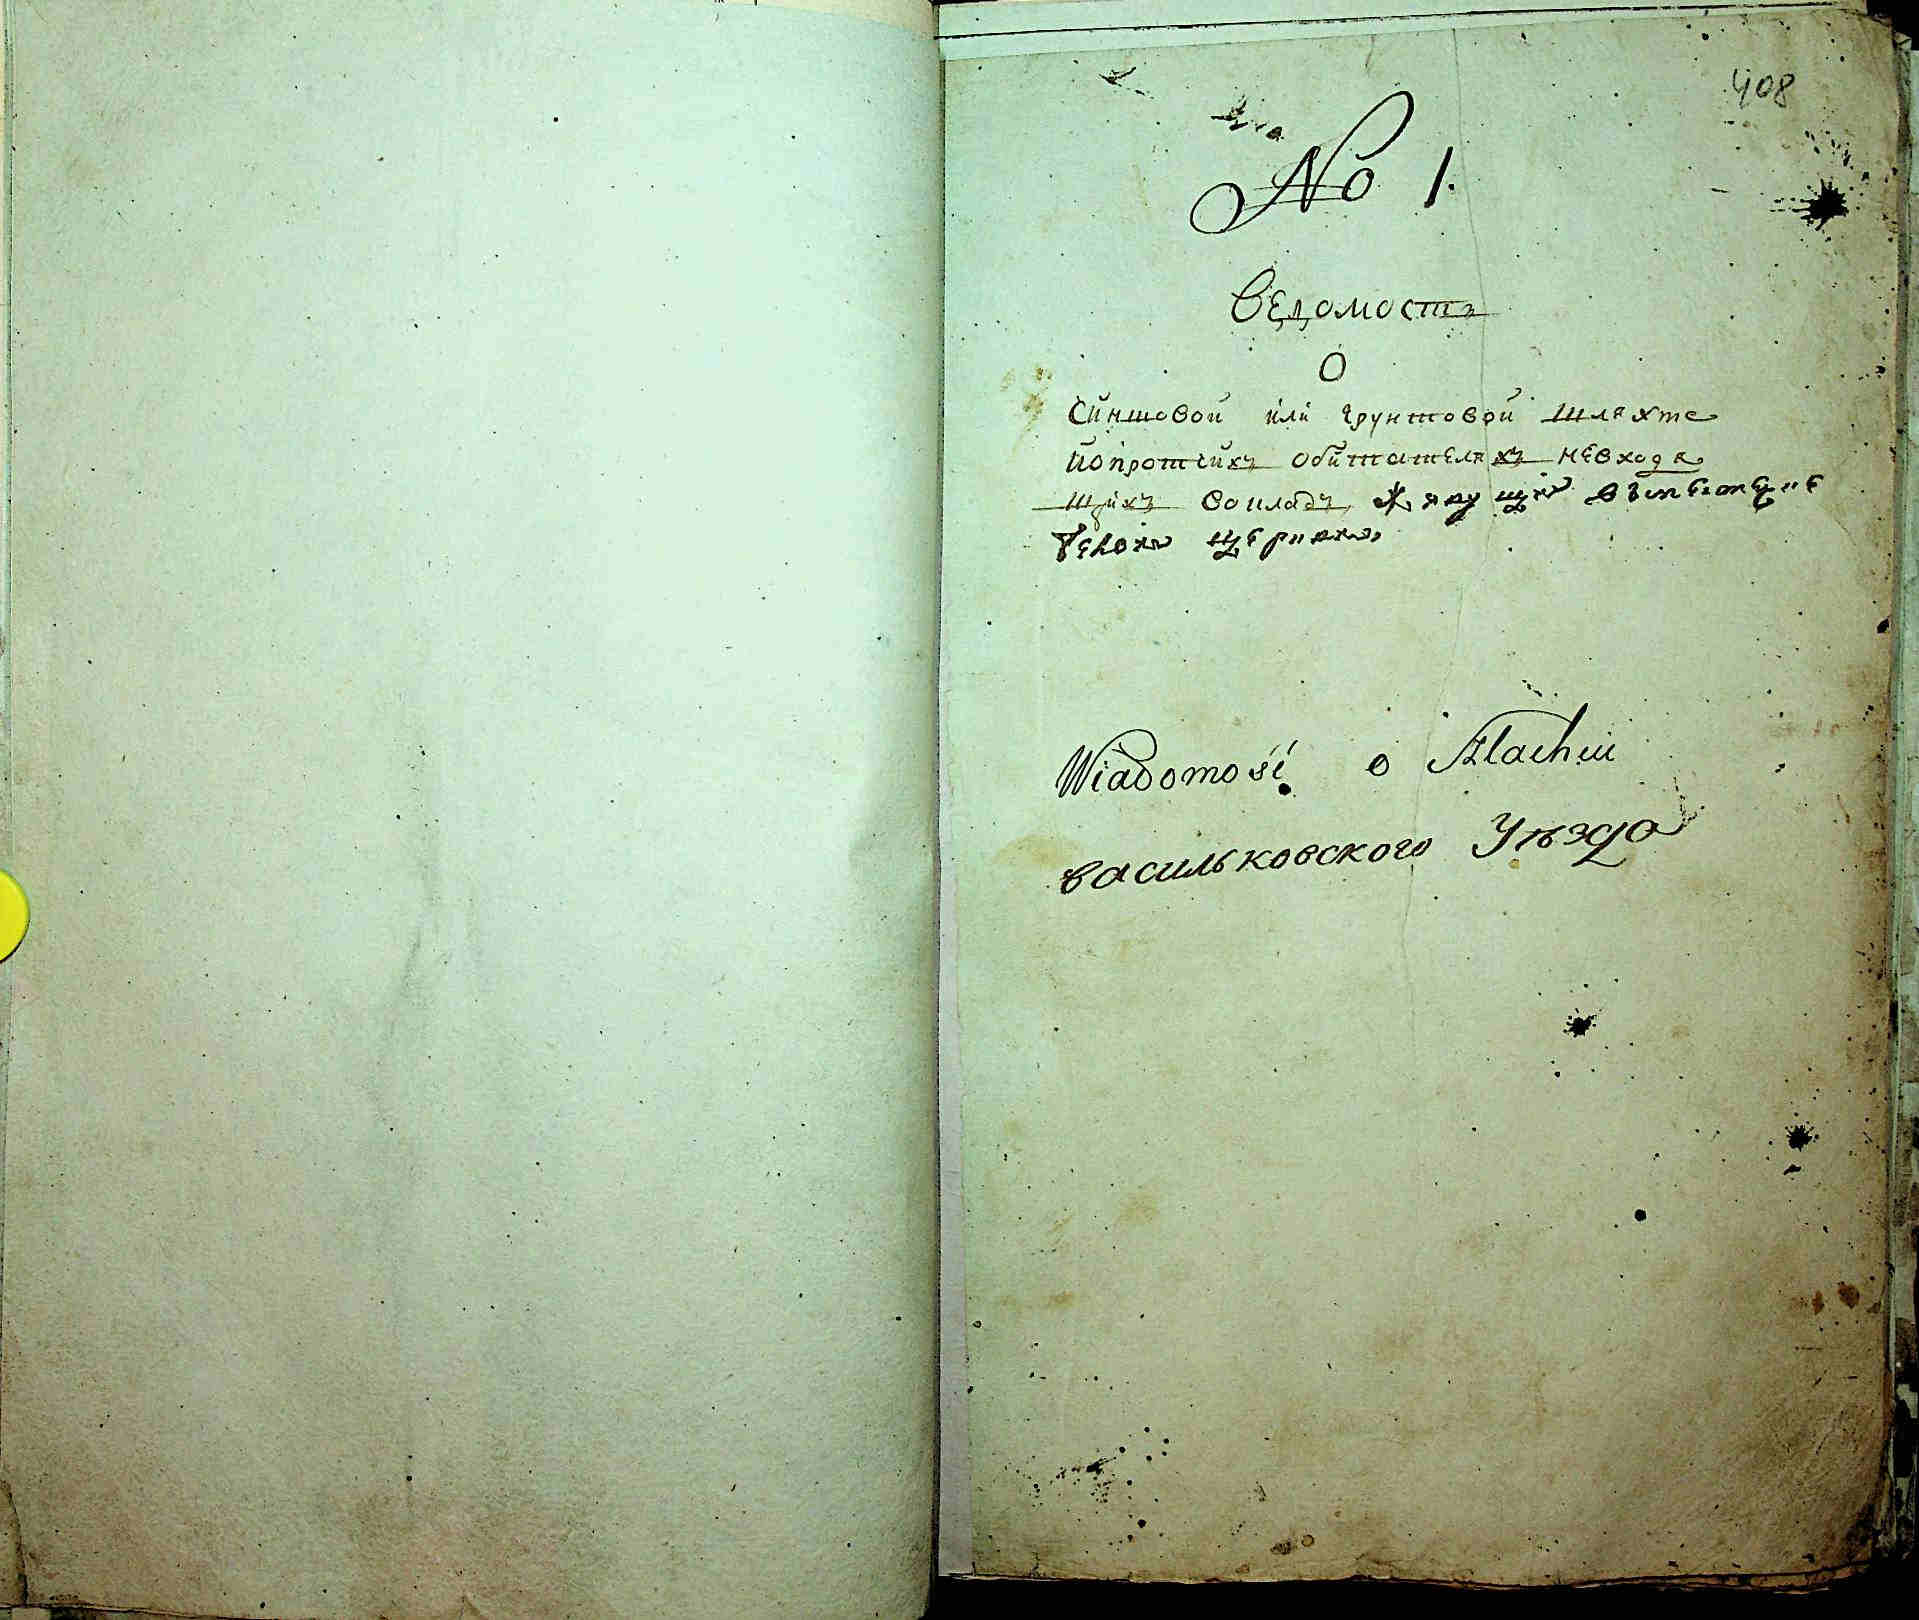 408
No 1.
Ведомостъ
О
Синшовой или грунтовой шляхте
ипротчихъ обитателяхъ невходя
щихъ вокладъ
Wiadomość o Szlachcie
васильковского Уѣзда